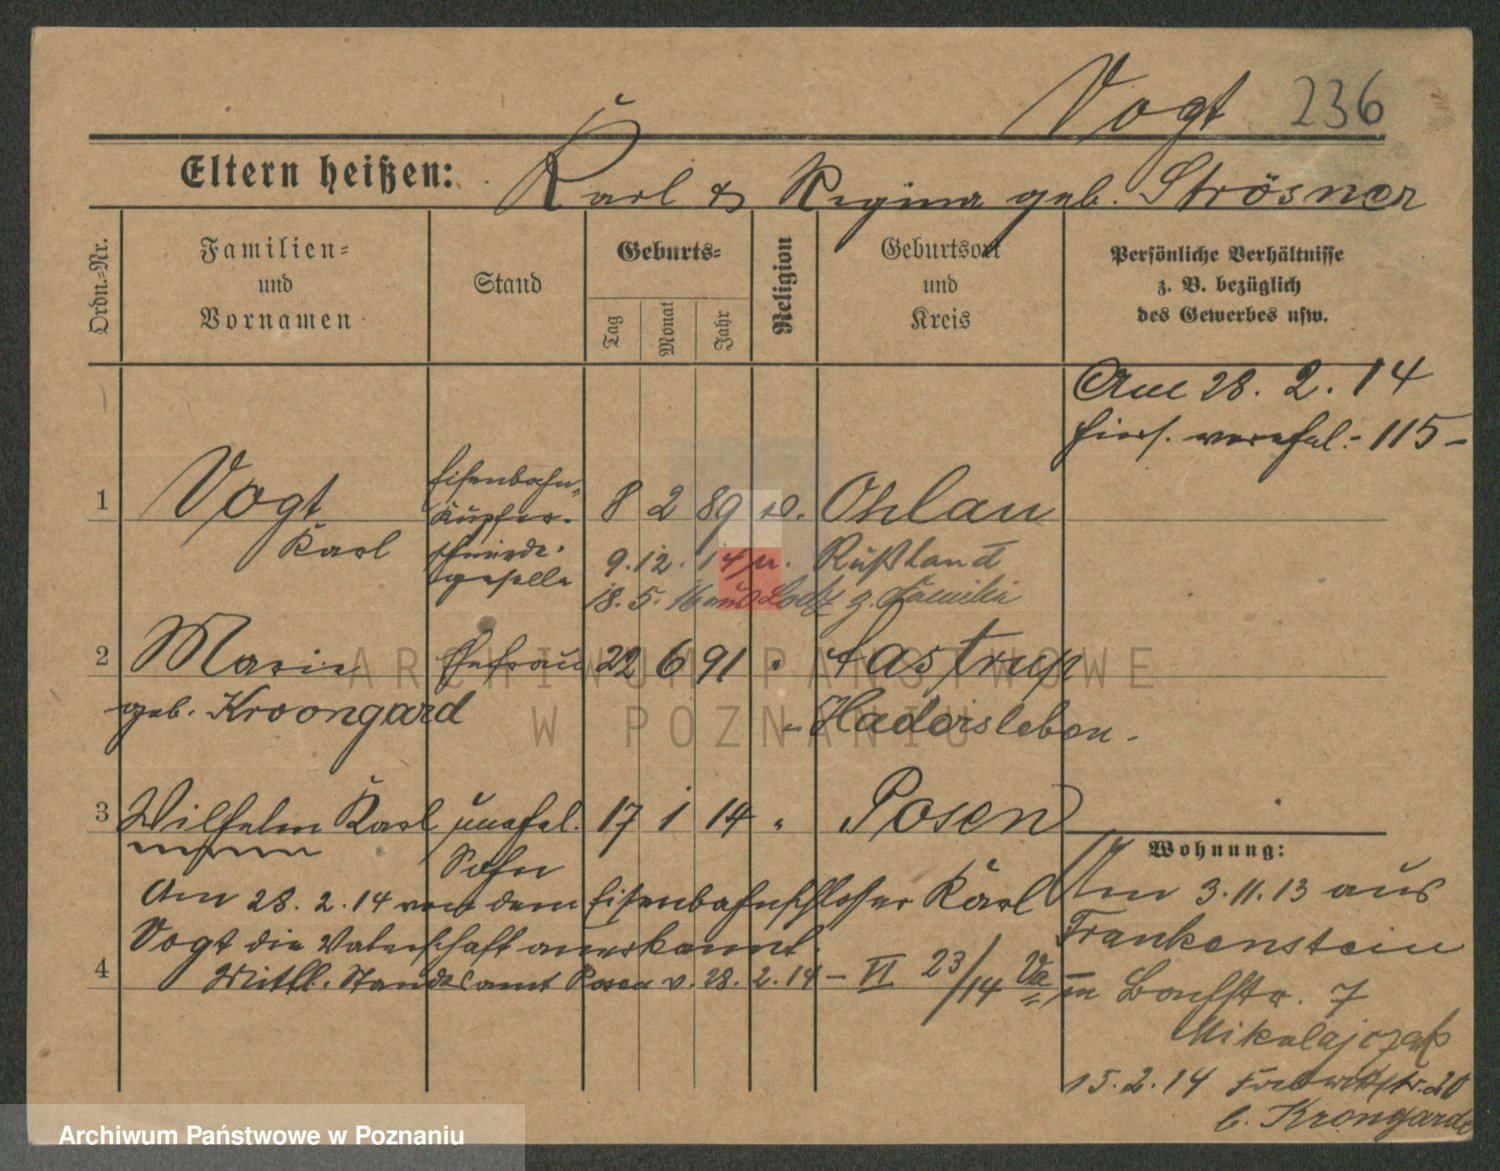 Vogt 236
Eltern heißen: Karl & Regina geb. Strösner
Ordn.-Nr.
Familien- und Vornamen
Stand
Geburts-
Tag
Monat
Jahr
Religion
Geburtsort und Kreis
Persönliche Verhältnisse
z. B. bezüglich
des Gewerbes usw.
Am 28. 2. 14
115
1 Vogt Eisenbahn- 8 2 89 Ohlau
Karl kupfer-
schmiede- 9. 12. 14 Rußland
geselle 18. 5. 16 aus Lodz z. Familie
2 Marie Ehefrau 22 6 91 " Aastrup
geb. Kroongard " Hadersleben.
3 Wilhelm Karl unehel. 17 1 14 " Posen
Sohn
Wohnung:
Am 28. 2. 14 von dem Eisenbahnschlosser Karl
Vogt die Vaterschaft anerkannt.
4 Mittl. Standesamt Posen v. 28. 2. 14 – VI 23/14
Am 3.11.13 aus
Frankenstein
7
Mikolajczak
15. 2. 14 20
b. Krongarde
ARCHIWUM PAŃSTWOWE
W POZNANIU
Archiwum Państwowe w Poznaniu